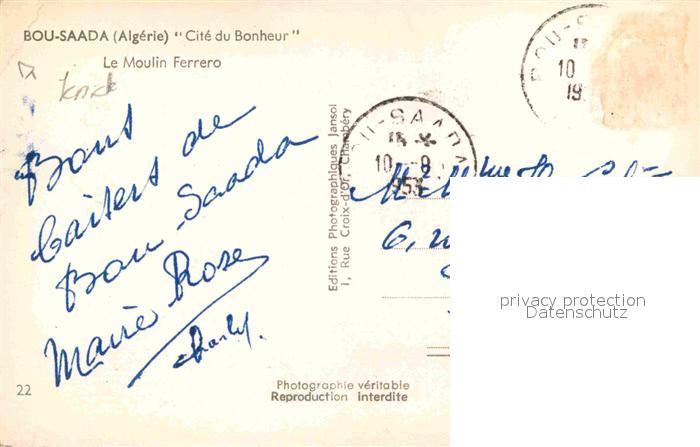 BOU-SAADA (Algérie) "Cité du Bonheur"
Le Moulin Ferrero
knick
Bons
baisers de
Bou-Saada
Marie Rose
Charly.
22
Editions Photographiques Jansol
1, Rue Croix-d'Or, Chambéry
BOU-SAADA
10 -9
1953
BOU-S
10
19
6, 
privacy protection
Datenschutz
Photographie véritable
Reproduction interdite